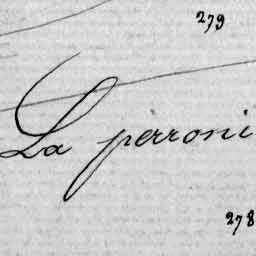 279
La perroni
278